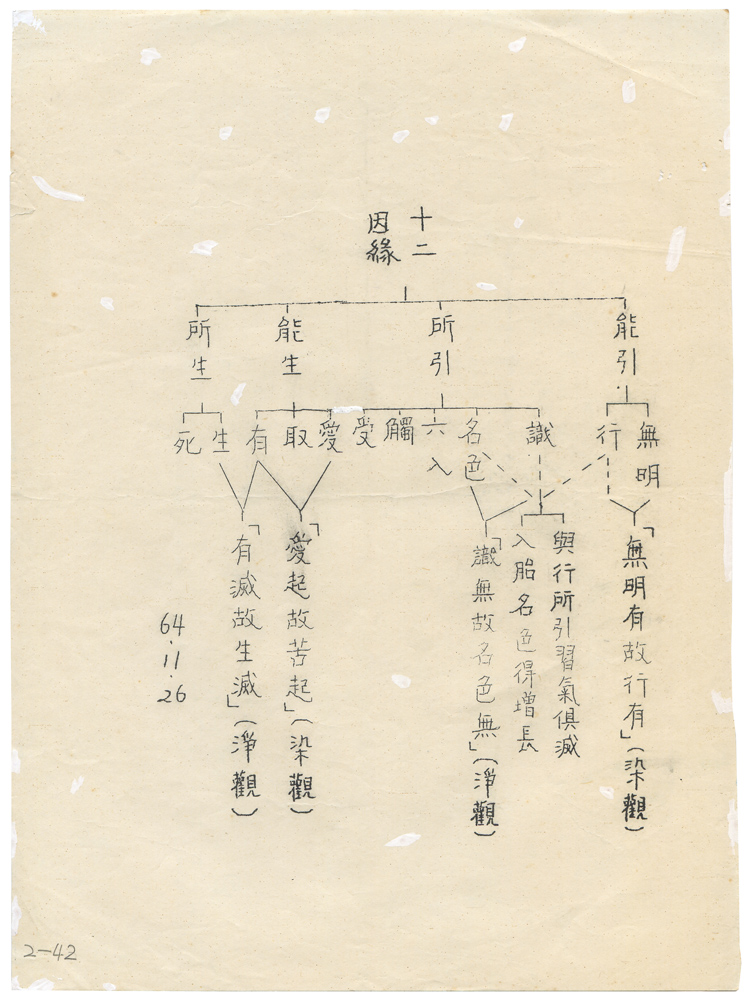 十二
因緣
能引
所引
能生
所生
無明
行
識
名色
六入
觸
受
愛
取
有
生
死
「無明有故行有」(染觀)
與行所引習氣俱滅
入胎名色得增長
「識無故名色無」(淨觀)
「愛起故苦起」(染觀)
「有滅故生滅」(淨觀)
64.11.26
2-42